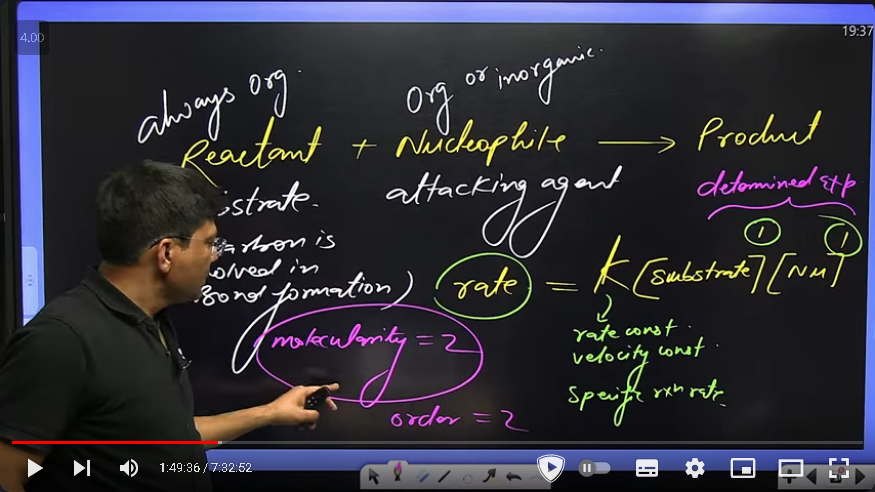 4.00
19:37
always org.
Org or inorganic.
Reactant + Nucleophile → Product
strate.
attacking agent
determined exp
1 1
carbon is
olved in
Bond formation)
rate = K [substrate] [Nu]
rate const.
velocity const.
specific rxn rate.
molecularity = 2
order = 2
1:49:36 / 7:32:52